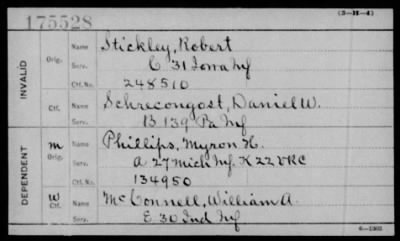 175528
(3-H-4)
INVALID
Orig.
Name Stickley, Robert
Serv. E 31 Iowa Inf
Ctf. No. 248510
Ctf.
Name Schrecongost, Daniel W.
Serv. B 139 Pa Inf
DEPENDENT
m
Orig.
Name Phillips, Myron H.
Serv. A 27 Mich Inf. K 22 VRC
Ctf. No. 134950
W
Ctf.
Name McConnell, William A.
Serv. E 30 Ind Inf